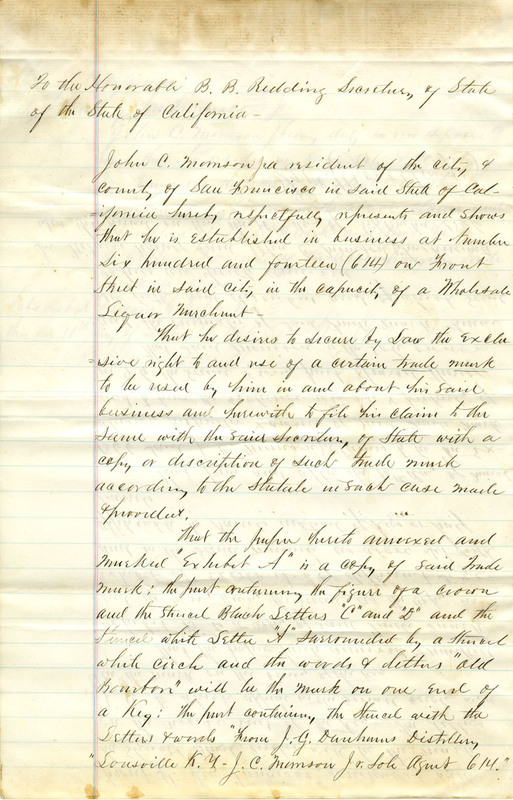 To the Honorable B. B. Redding Secretary of State
of the State of California -
John C. Morrison Jr a resident of the city &
county of San Francisco in said State of Cal-
=ifornia hereby respectfully represents and shows
that he is established in business at Number
Six hundred and fourteen (614) on Front
Street in said city, in the capacity of a Wholesale
Liquor Merchant -
That he desires to secure by Law the Exclu
=sive right to and use of a certain trade mark
to be used by him in and about his said
business and herewith to file his claim to the
same with the said Secretary of State with a
copy or description of such trade mark
according to the Statute in such case made
& provided.
That the paper hereto annexed and
marked "Exhibit A" is a copy of said Trade
mark: the part containing the figure of a crown
and the stencil Black Letters "C" and "D" and the
stencil white Letter "A" surrounded by a stencil
white circle and the words & letters "Old
Bourbon" will be the mark on one End of
a Keg: the part containing the stencil with the
Letters & words "From J. G. Denhams Distillery
"Louisville K. Y - J. C. Morrison Jr. Sole Agent 614."